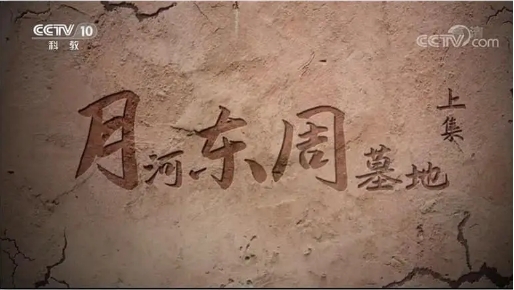 CCTV 10
科教
CCTV.com
月河东周墓地
上集